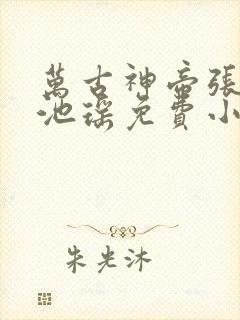 萬古神帝張
池瑤免費小
朱光沐